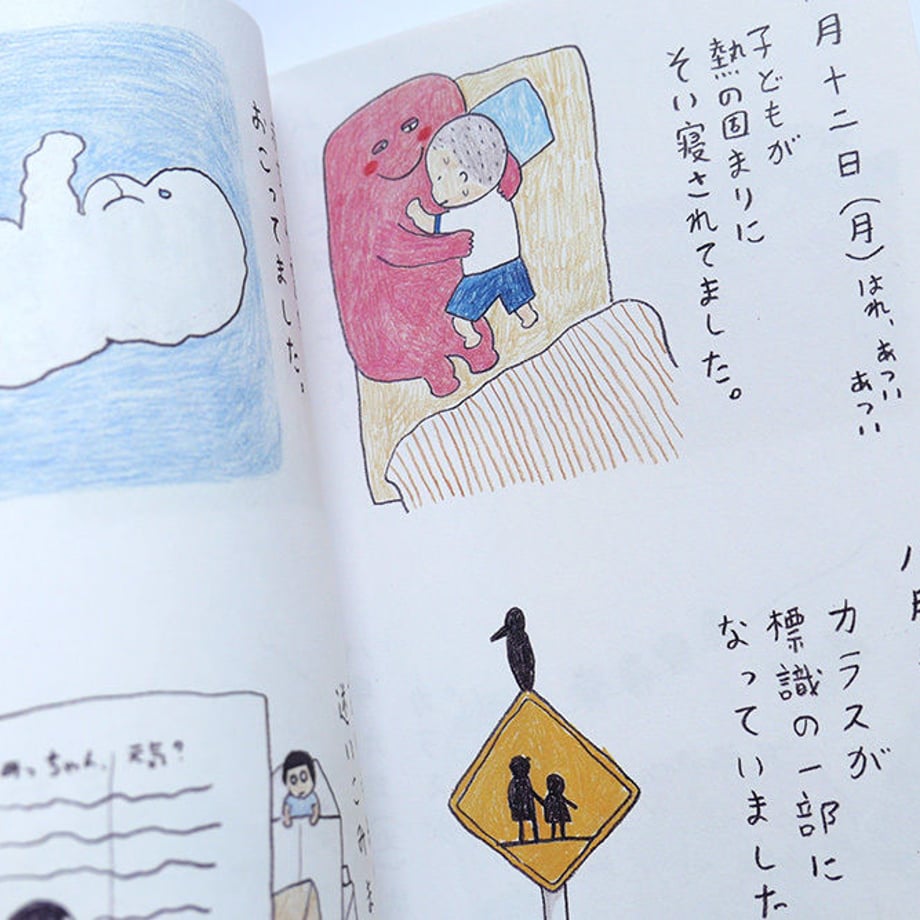 月十二日(月)はれ、あつい
あつい
子どもが
熱の固まりに
そい寝されてました。
カラスが
標識の一部に
なっていました
おこってました。
めっちゃん、元気?